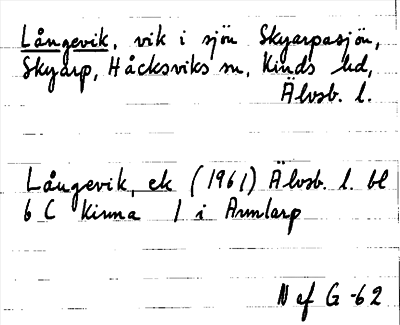 Långevik, vik i sjön Skyarpasjön,
Skyarp, Håcksviks sn, Kinds hd,
Älvsb. l.
Långevik, ek (1961) Älvsb. l. bl
6 C Kinna 1 i Armlarp
N ef G -62